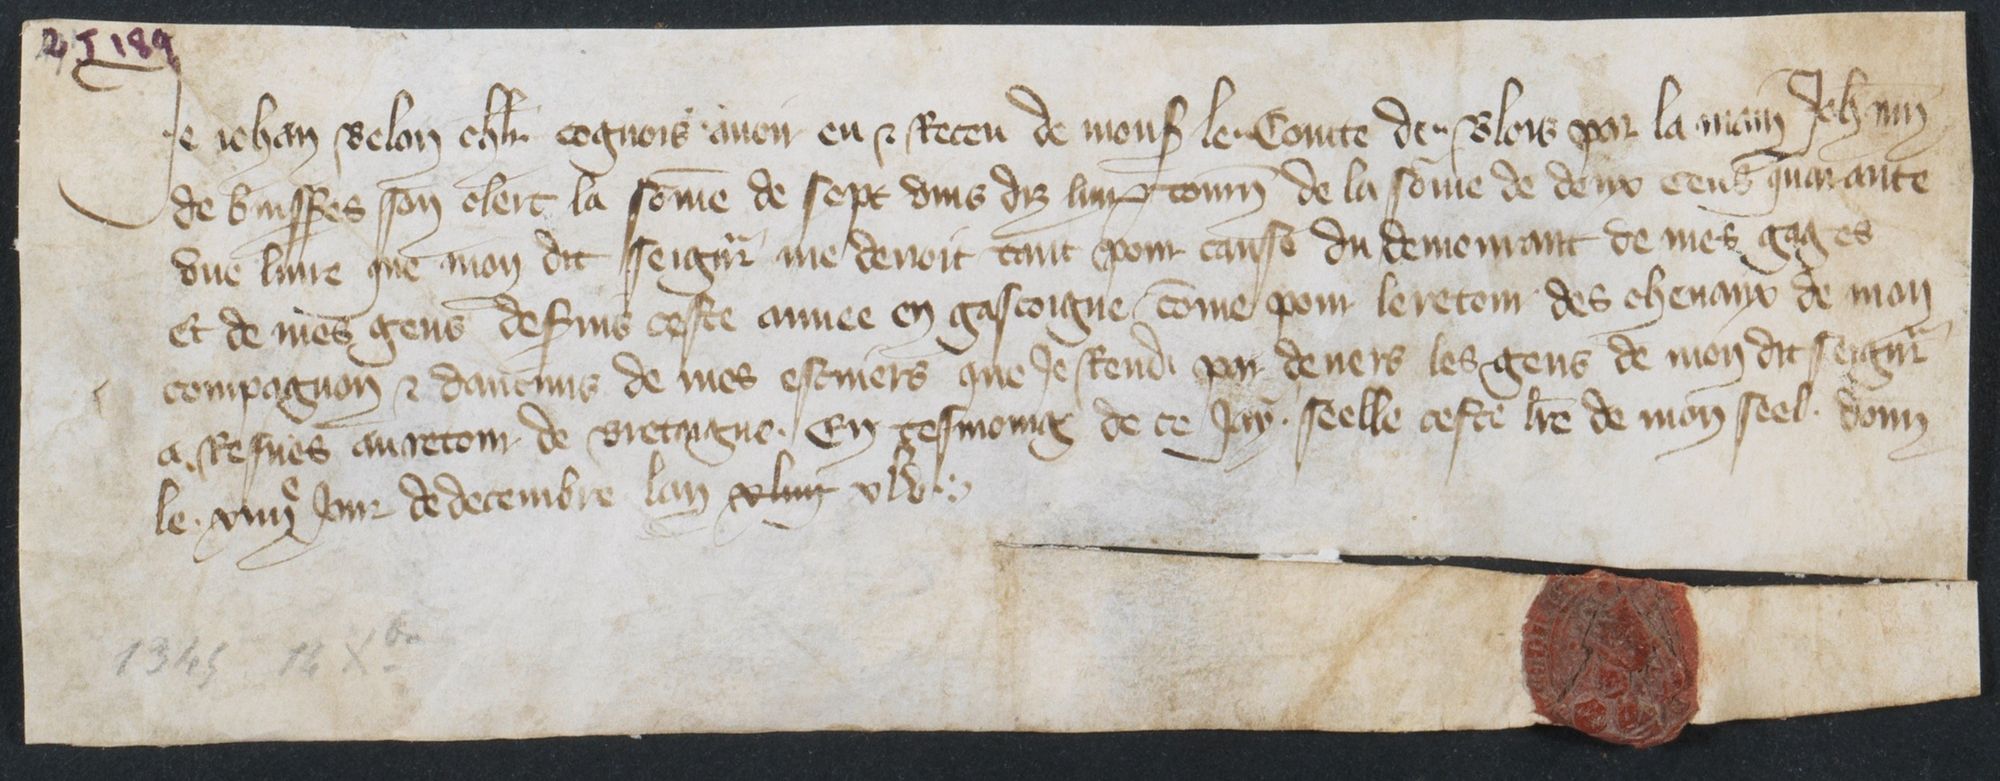 2 J 189
Je iehan Belon chlr cognois avoir eu & Receu de mons le Comte de Blois par la main Jehnin
de son clerc la some de sept vins diz livr tourn de la some de deux cens quarante
une livre que mon dit seignr me devoit tant pour cause du demourant de mes gages
Et de mes gens desservis ceste annee en gascoigne come pour le retour des chevaux de mon
compagnon & daucuns de mes escuiers que Je Rendi par devers les gens de mon dit seignr
a Resnes au retour de Bretaigne. En tesmoing de ce Jay seelle ceste lre de mon seel. donn
le xiiiie Jour de decembre lan xlv
1345 14 Xbre